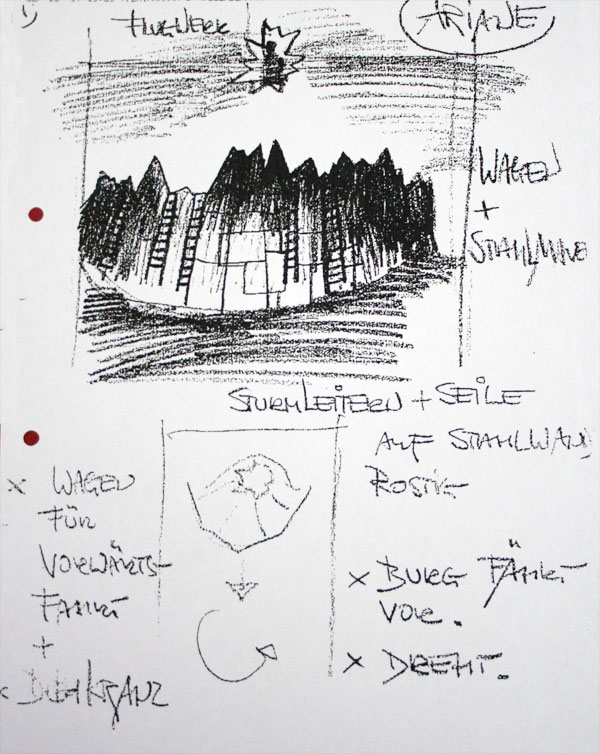 1)
FLUGWERK
ARIANE
WAGEN
+
STAHLWAND
STURMLEITERN + SEILE
AUF STAHLWAND
ROSTIG
x WAGEN
FÜR
VORWÄRTS-
FAHRT
+
x DREHKRANZ
x BURG FÄHRT
VOR.
x DREHT.